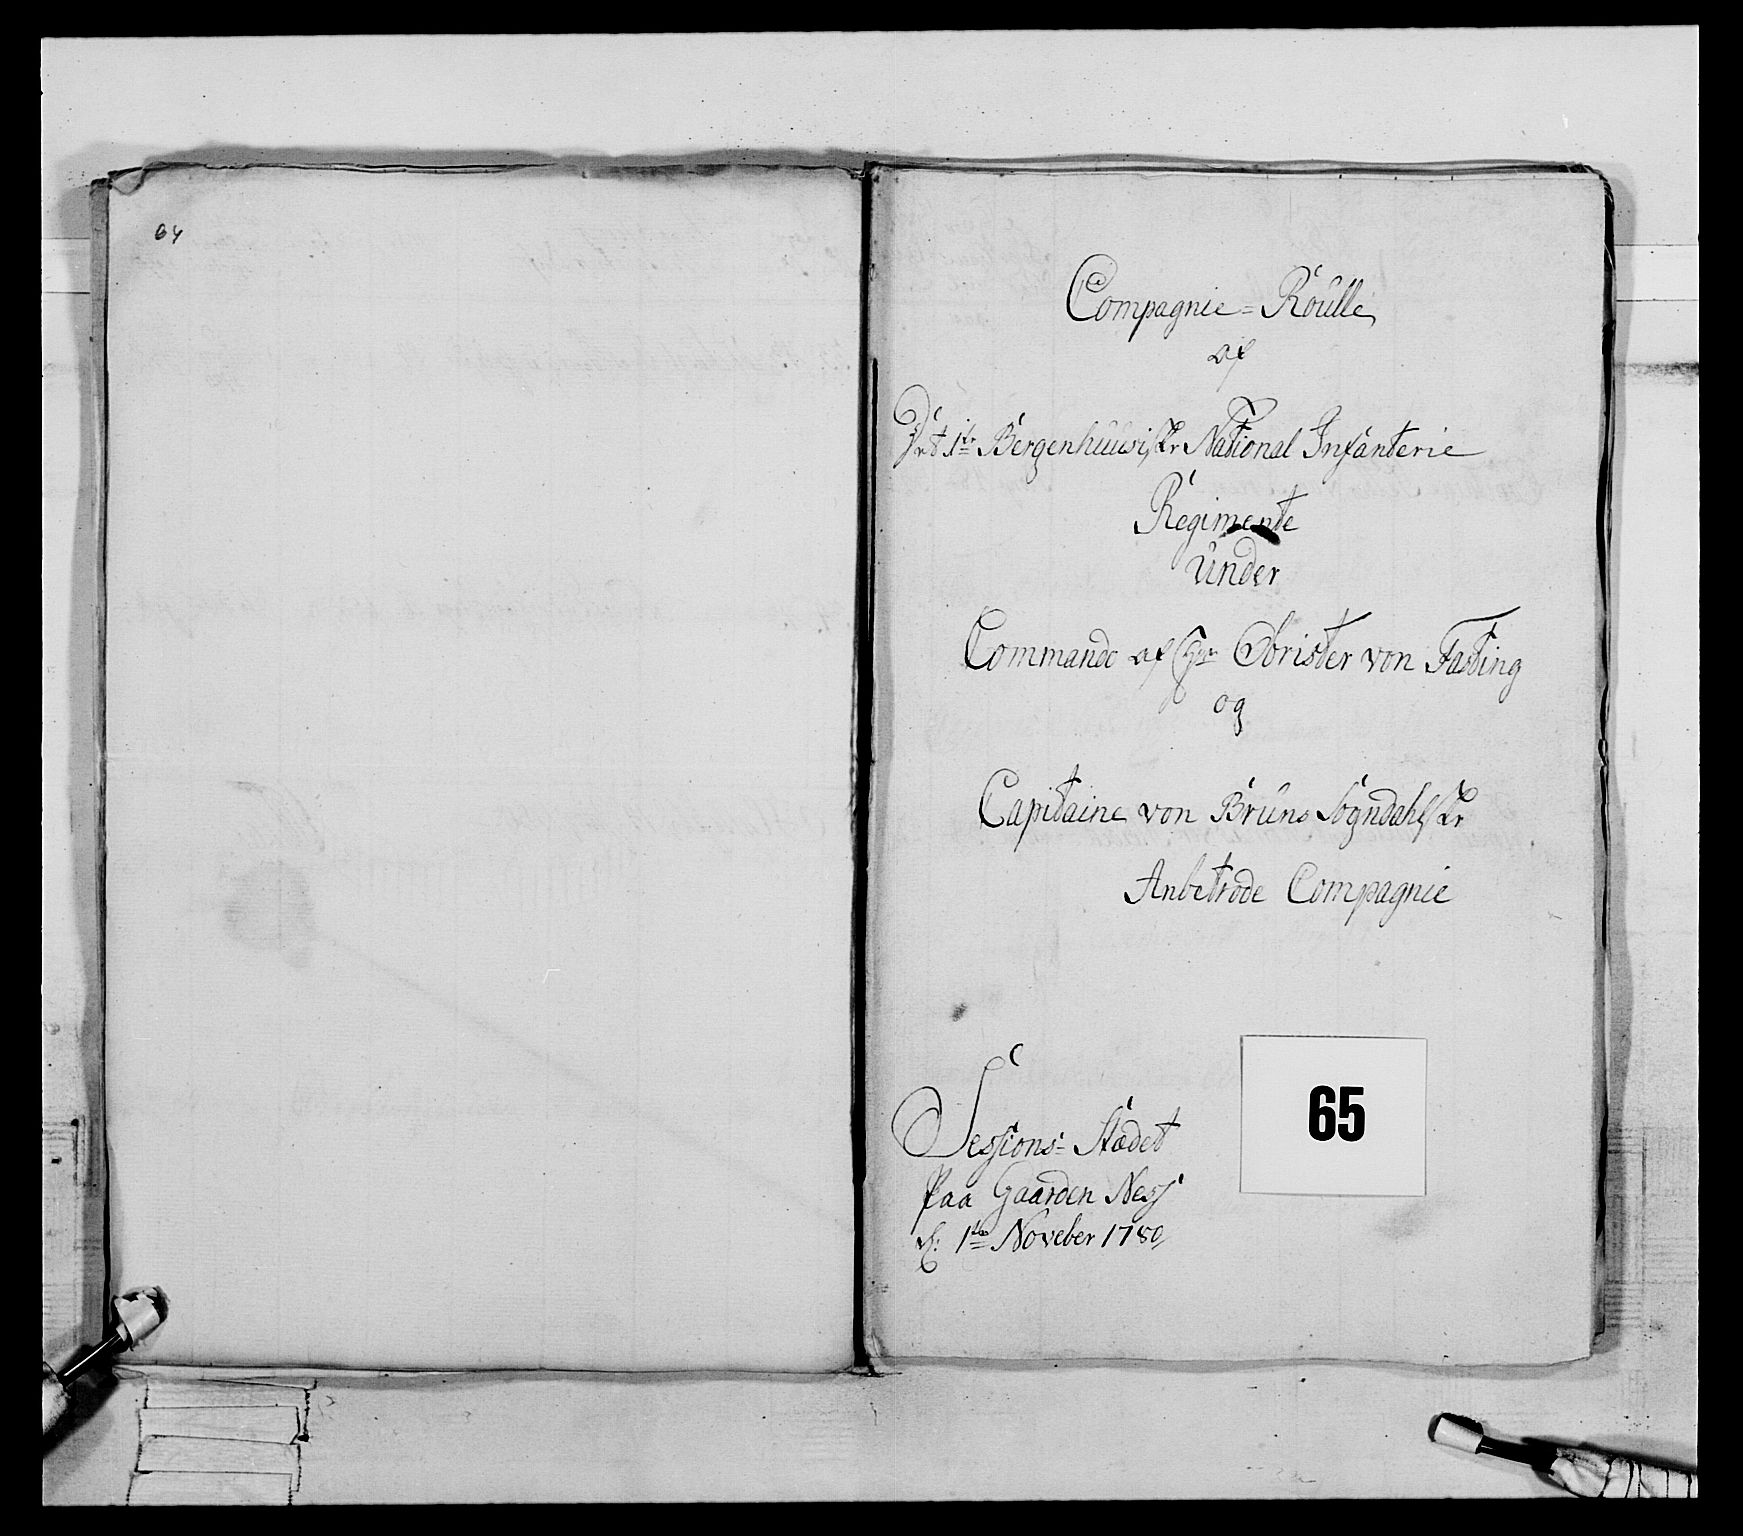 64
Compagnie = Roulle
af
Det 1te Bergenhuusiske National Infanterie
Regimente
Under
Commando af Hr Obrister von Fasting
og
Capitaine von Bruns Sogndahlske
Anbetrode Compagnie
65
Sessions = Stædet
Paa Gaarden Ness
d: 1te Noveber 1780